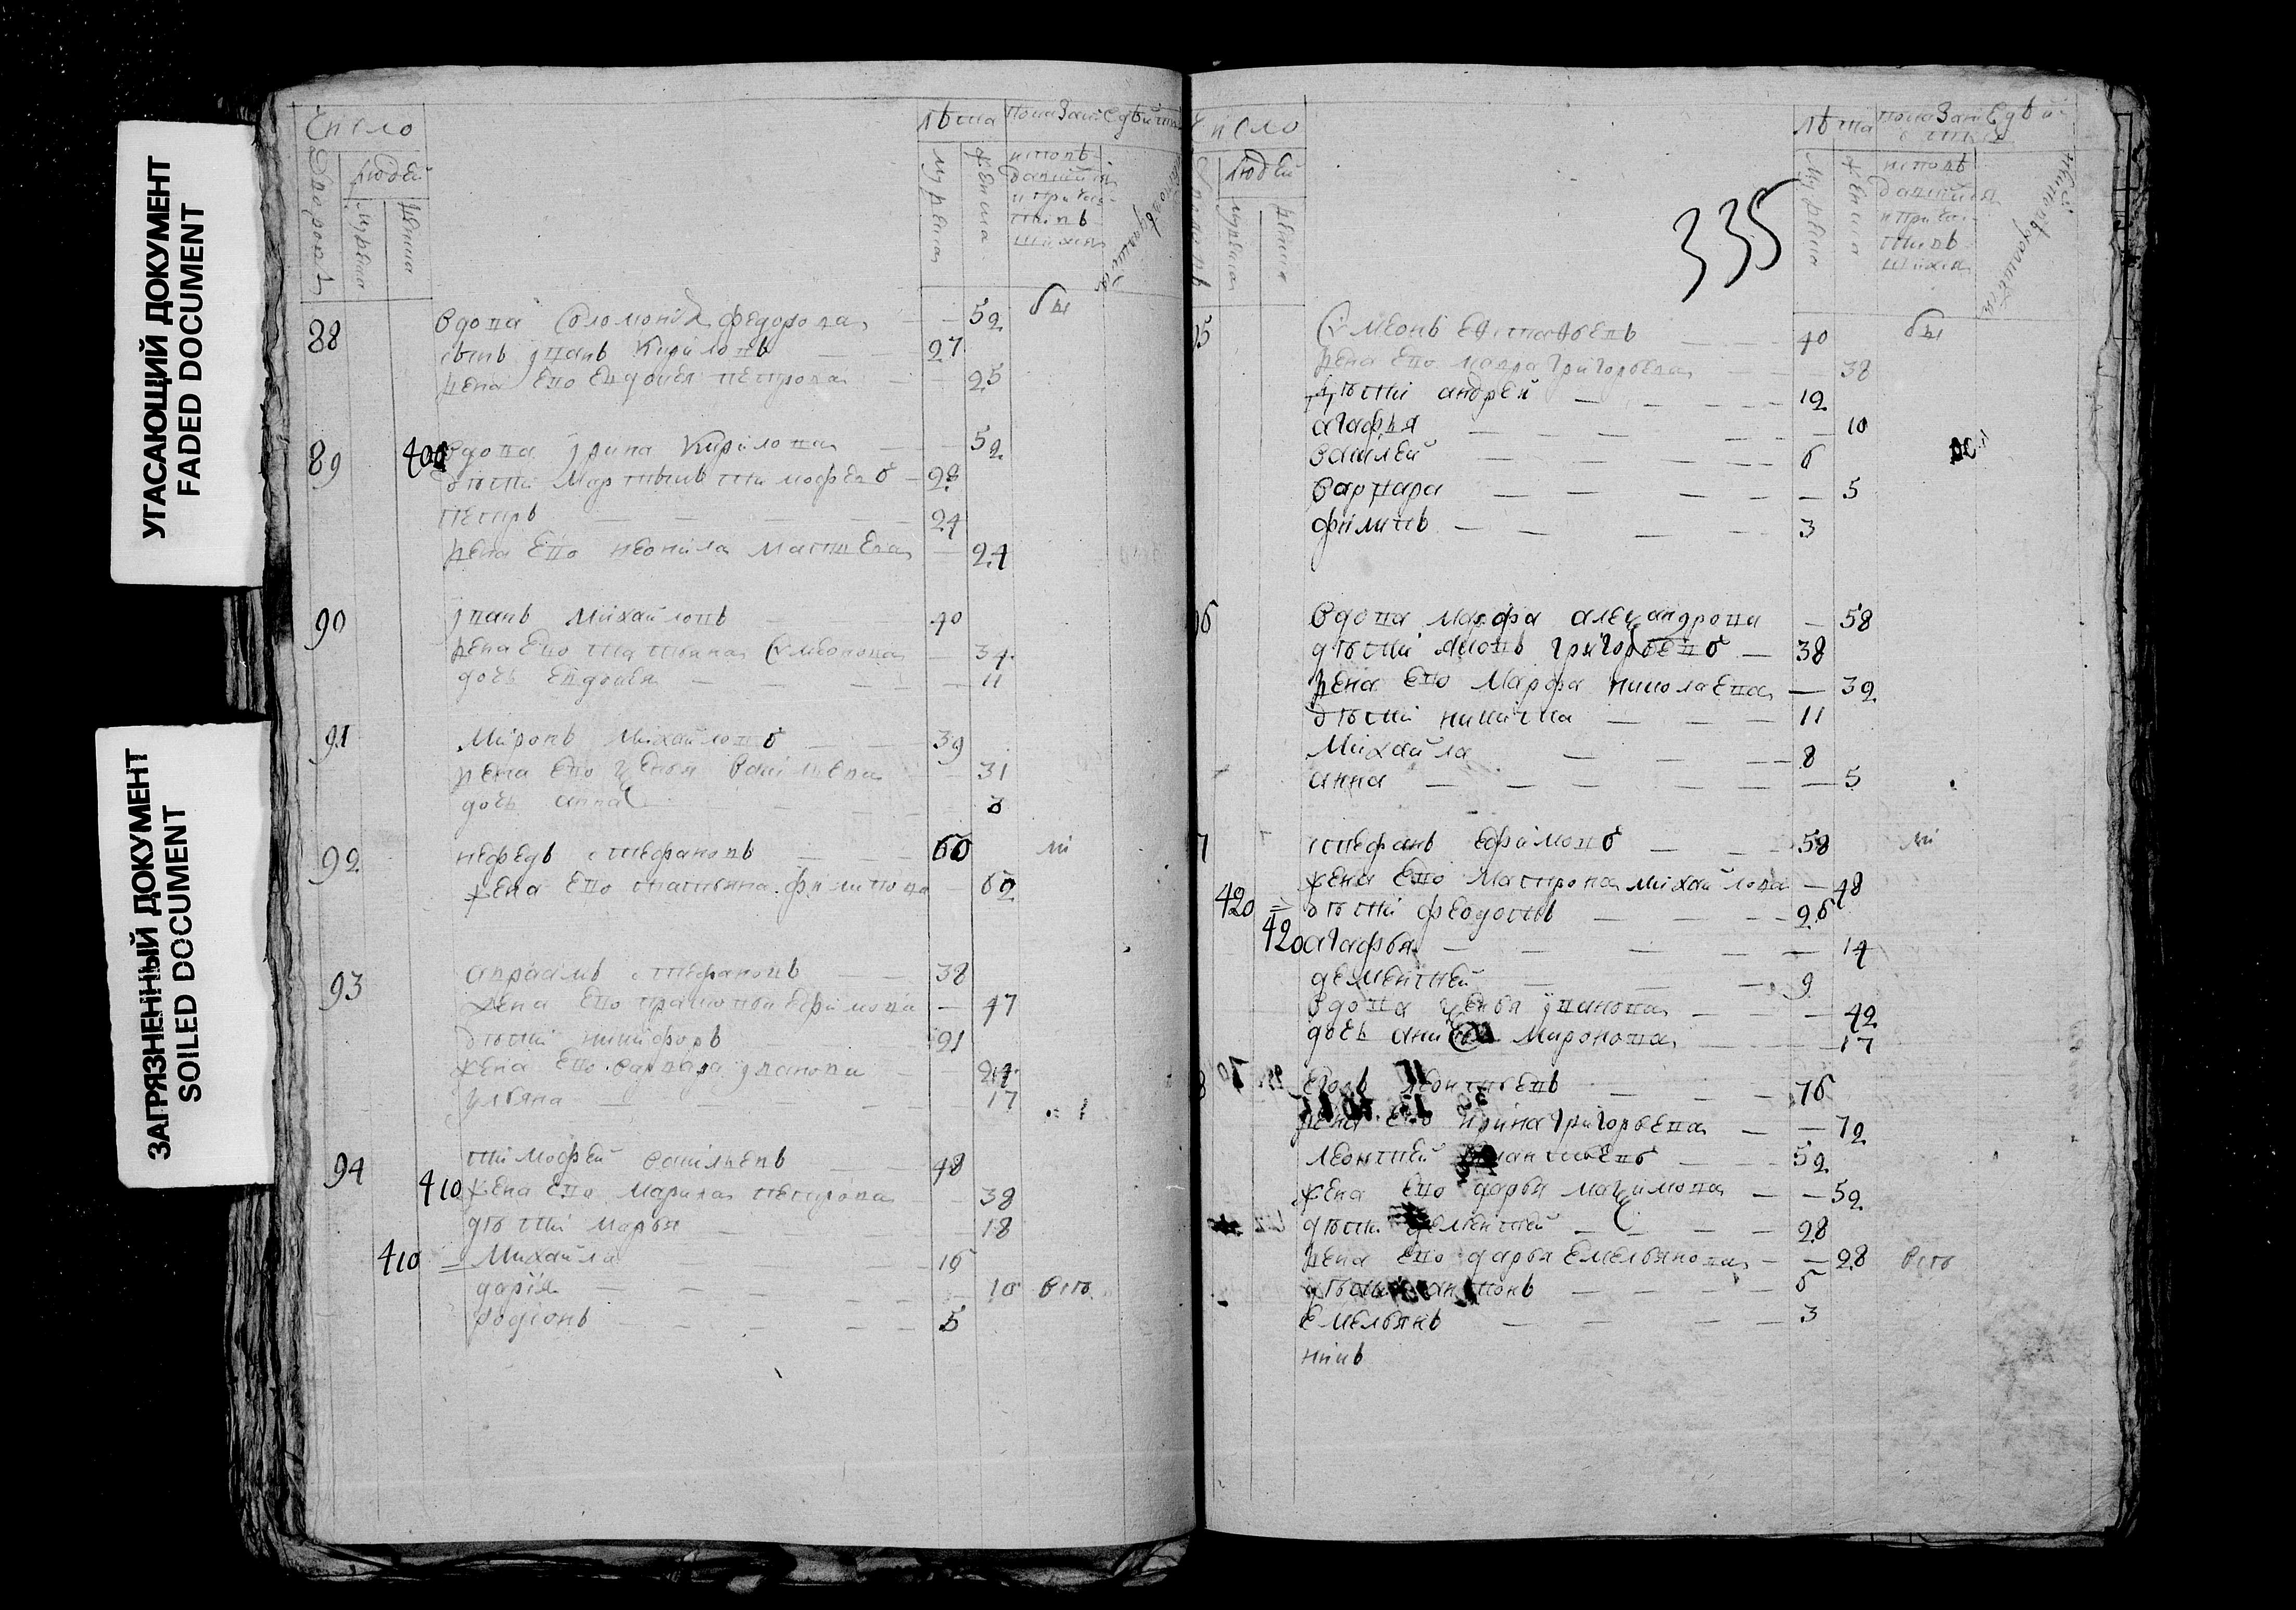 УГАСАЮЩИЙ ДОКУМЕНТ
FADED DOCUMENT
ЗАГРЯЗНЕННЫЙ ДОКУМЕНТ
SOILED DOCUMENT
Число
Дворовъ
людей
мужеска
женска
лѣта
мужеска
женска
88 вдова Соломония федорова 52 бы
сынъ иванъ Кириловъ 27
жена его евдокея петрова 25
89 400 вдова ирина Кирилова 52
дѣти Мартынъ тимофеевъ 28
петръ 24
жена его неонила матвеева 24
90 иванъ Михайловъ 40
жена его татьяна Симеонова 34
дочь евдокея 11
91 Миронъ Михайловъ 39
жена его ксенья васильева 31
дочь анна 3
92 нефедъ стефановъ 60 ли
жена его татьяна филипова 62
93 авраамъ стефановъ 38
жена его прасковья ефимова 47
дѣти никифоръ 21
жена его варвара иванова 24
ульяна 17
94 тимофей васильевъ 48
410 жена его Марина петрова 38
дѣти марья 18
410 Михайла 16
дария 10 всѣ
родионъ 5
Число
людей
мужеска
женска
335
лѣта
мужеска
женска
Симеонъ евстафьевъ 40 бы
жена его мавра григорьева 38
дѣти андрей 12
агафья 10
василей 6
варвара 5
филипъ 3
вдова марфа александрова 58
дѣти яковъ григорьевъ 38
жена его Марфа николаева 32
дѣти никита 11
Михайла 8
анна 5
стефанъ ефимовъ 58 ли
жена его Матрона михайлова 48
420 дѣти феодотъ 26
420 агафья 14
дементей 9
вдова ксенья иванова 42
дочь Миронова 17
леонтьевъ 76
жена его ирина григорьева 72
леонтей 52
жена его дарья максимова 52
дѣти дементей 28
жена его дарья емельянова 28 всѣ
дѣти антонъ 5
емельянъ 3
никъ